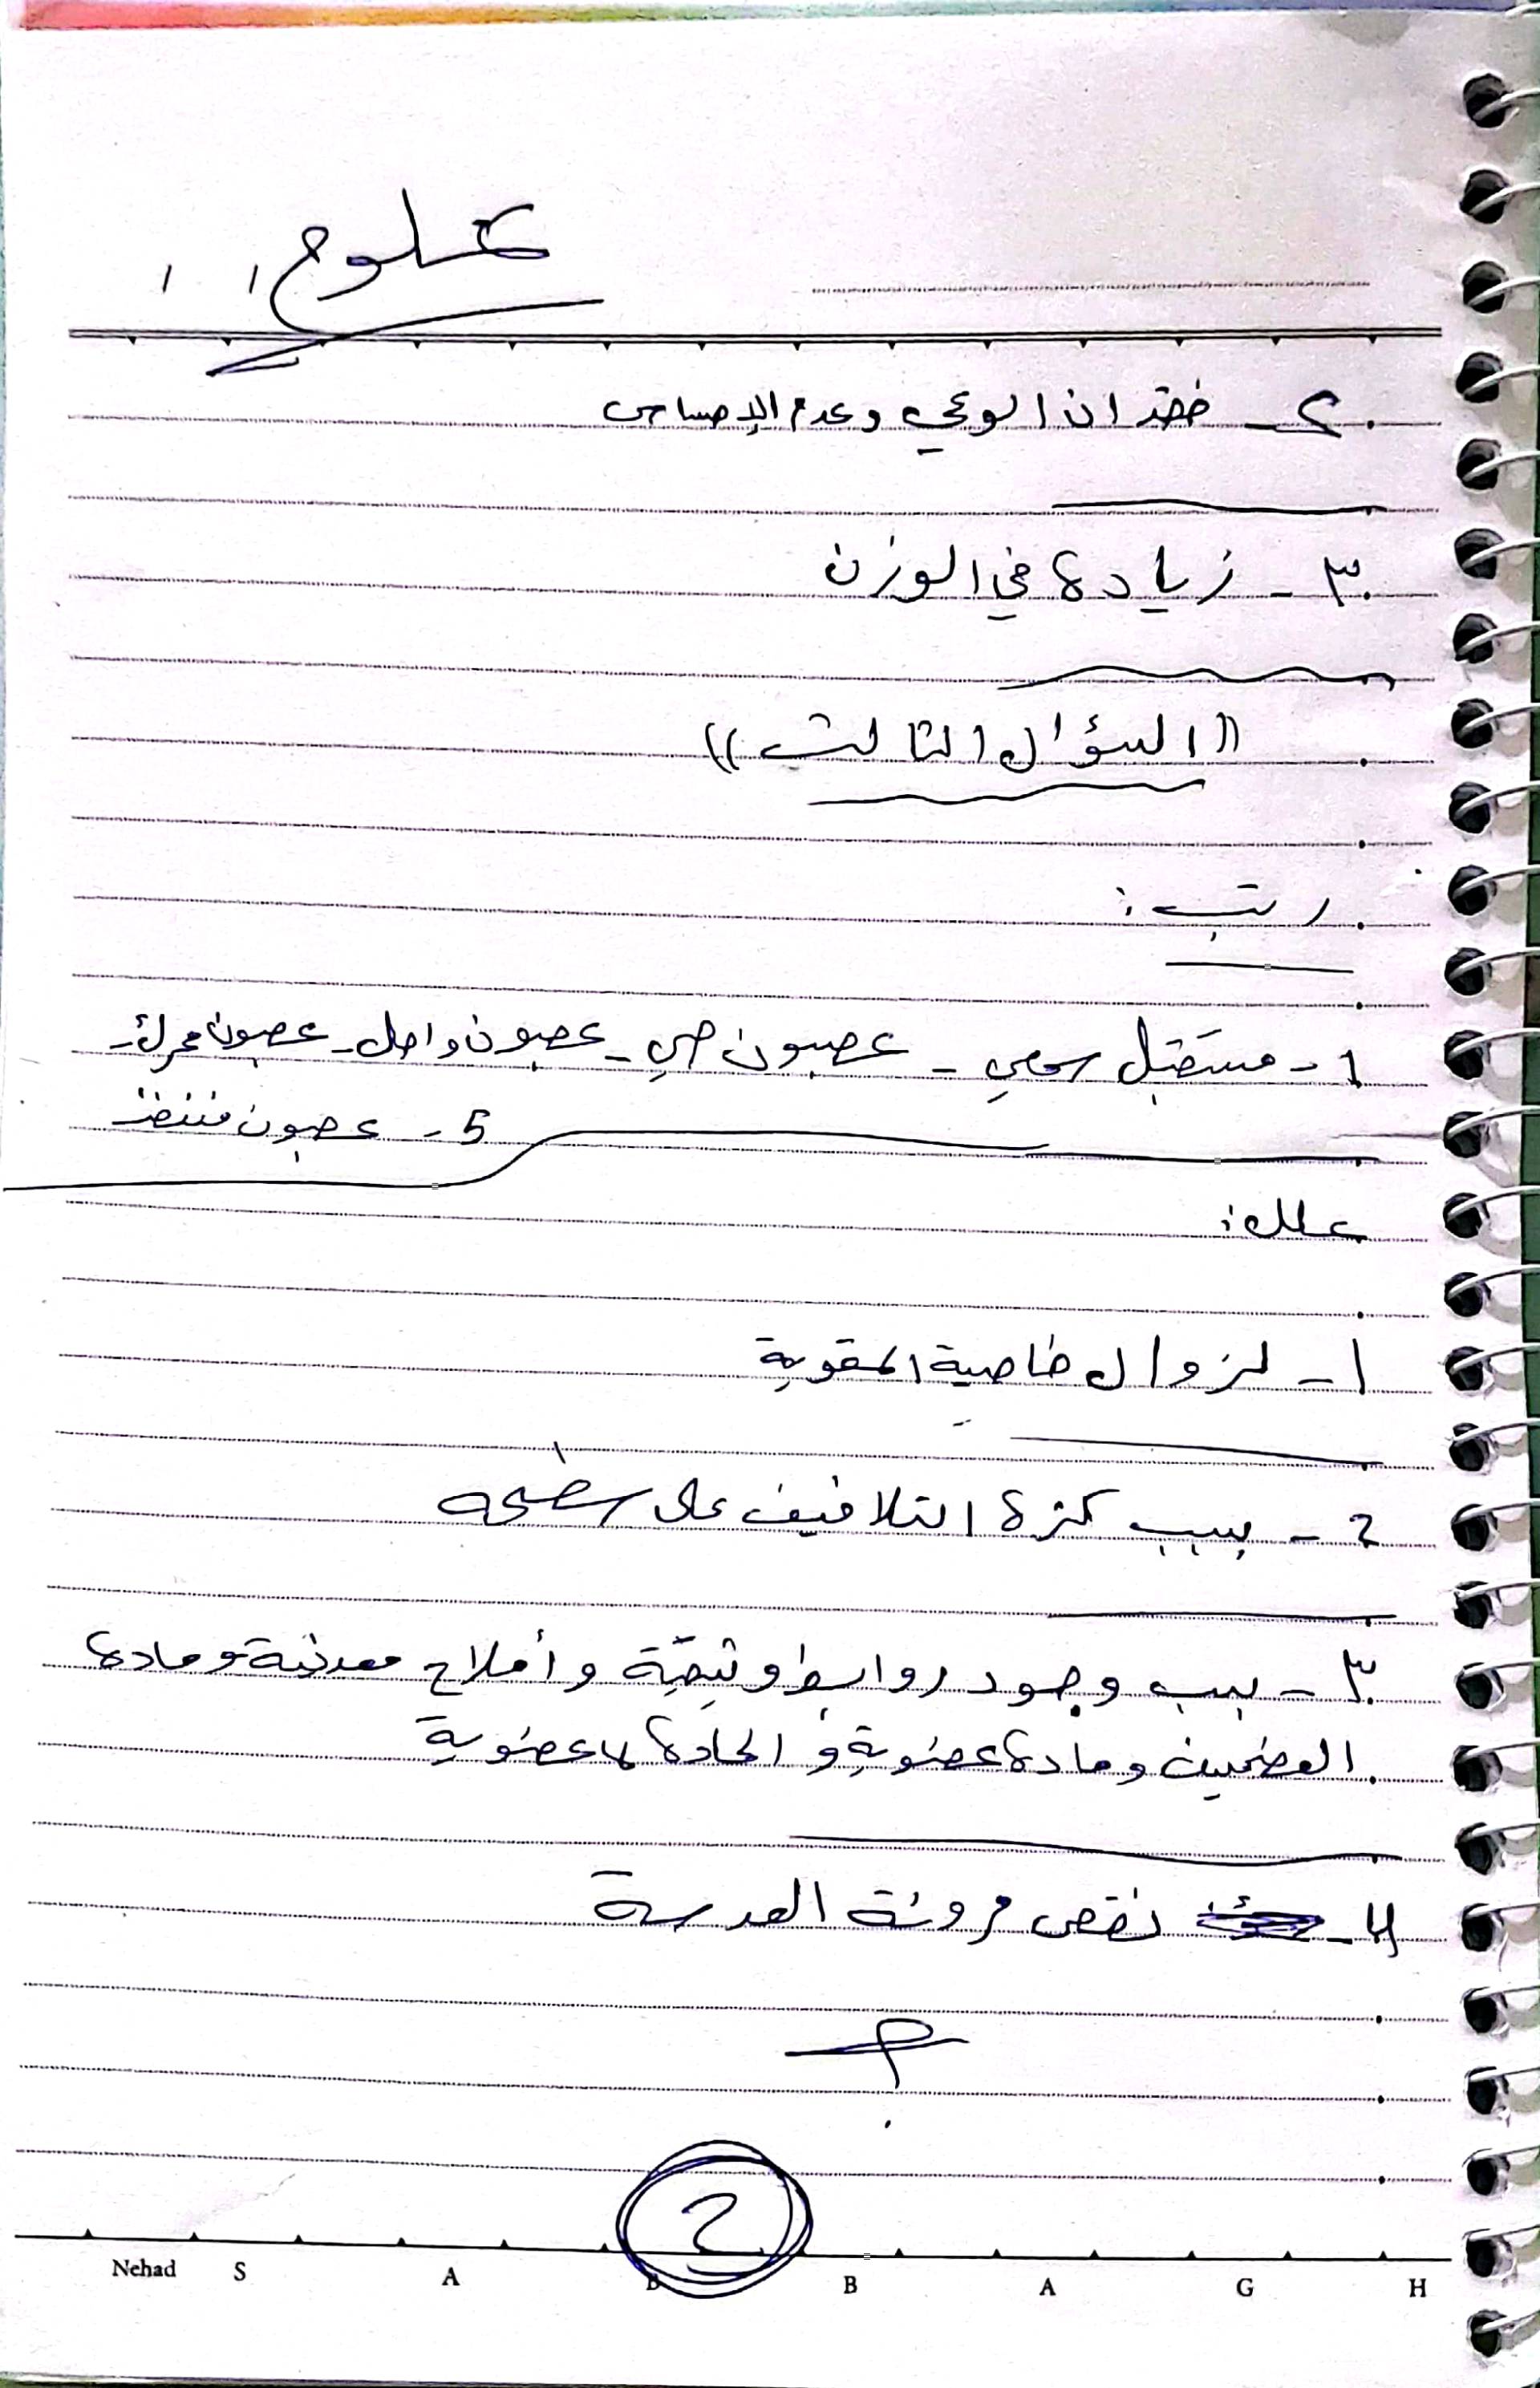 علوم
2 - فقدان الوعي وعدم الإحساس
٣ - زيادة في الوزن
((السؤال الثالث))
رتب:
1 - مستقبل سمعي - عصبون حسي - عصبون واصل - عصبون محرك -
5 - عصبون منفذ
علل:
١ - لزوال خاصية المقوية
2 - بسبب كثرة التلافيف على سطحه
٣ - بسبب وجود روابط وثيقة وأملاح معدنية ومادة
العظميين ومادة عضوية و المادة لاعضوية
4 - نقص مرونة العدسة
2
Nehad S A B B A G H